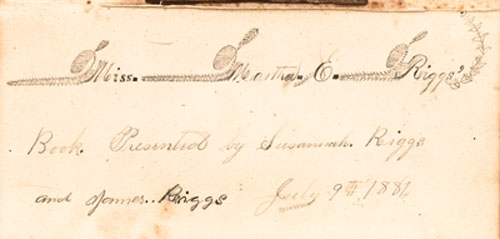 Miss. Martha. E. Riggs'
Book. Presented by Susannah. Riggs
and James.. Riggs July 9th 1881.